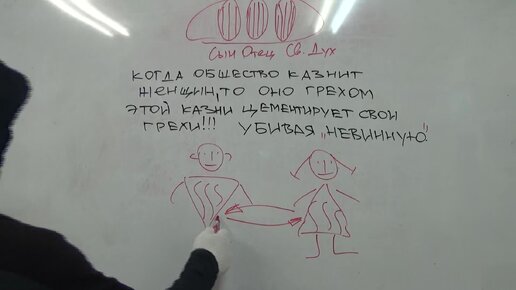 Сын Отец Св. Дух
КОГДА ОБЩЕСТВО КАЗНИТ
ЖЕНЩИН, ТО ОНО ГРЕХОМ
ЭТОЙ КАЗНИ ЦЕМЕНТИРУЕТ СВОИ
ГРЕХИ!!! УБИВАЯ „НЕВИННУЮ"